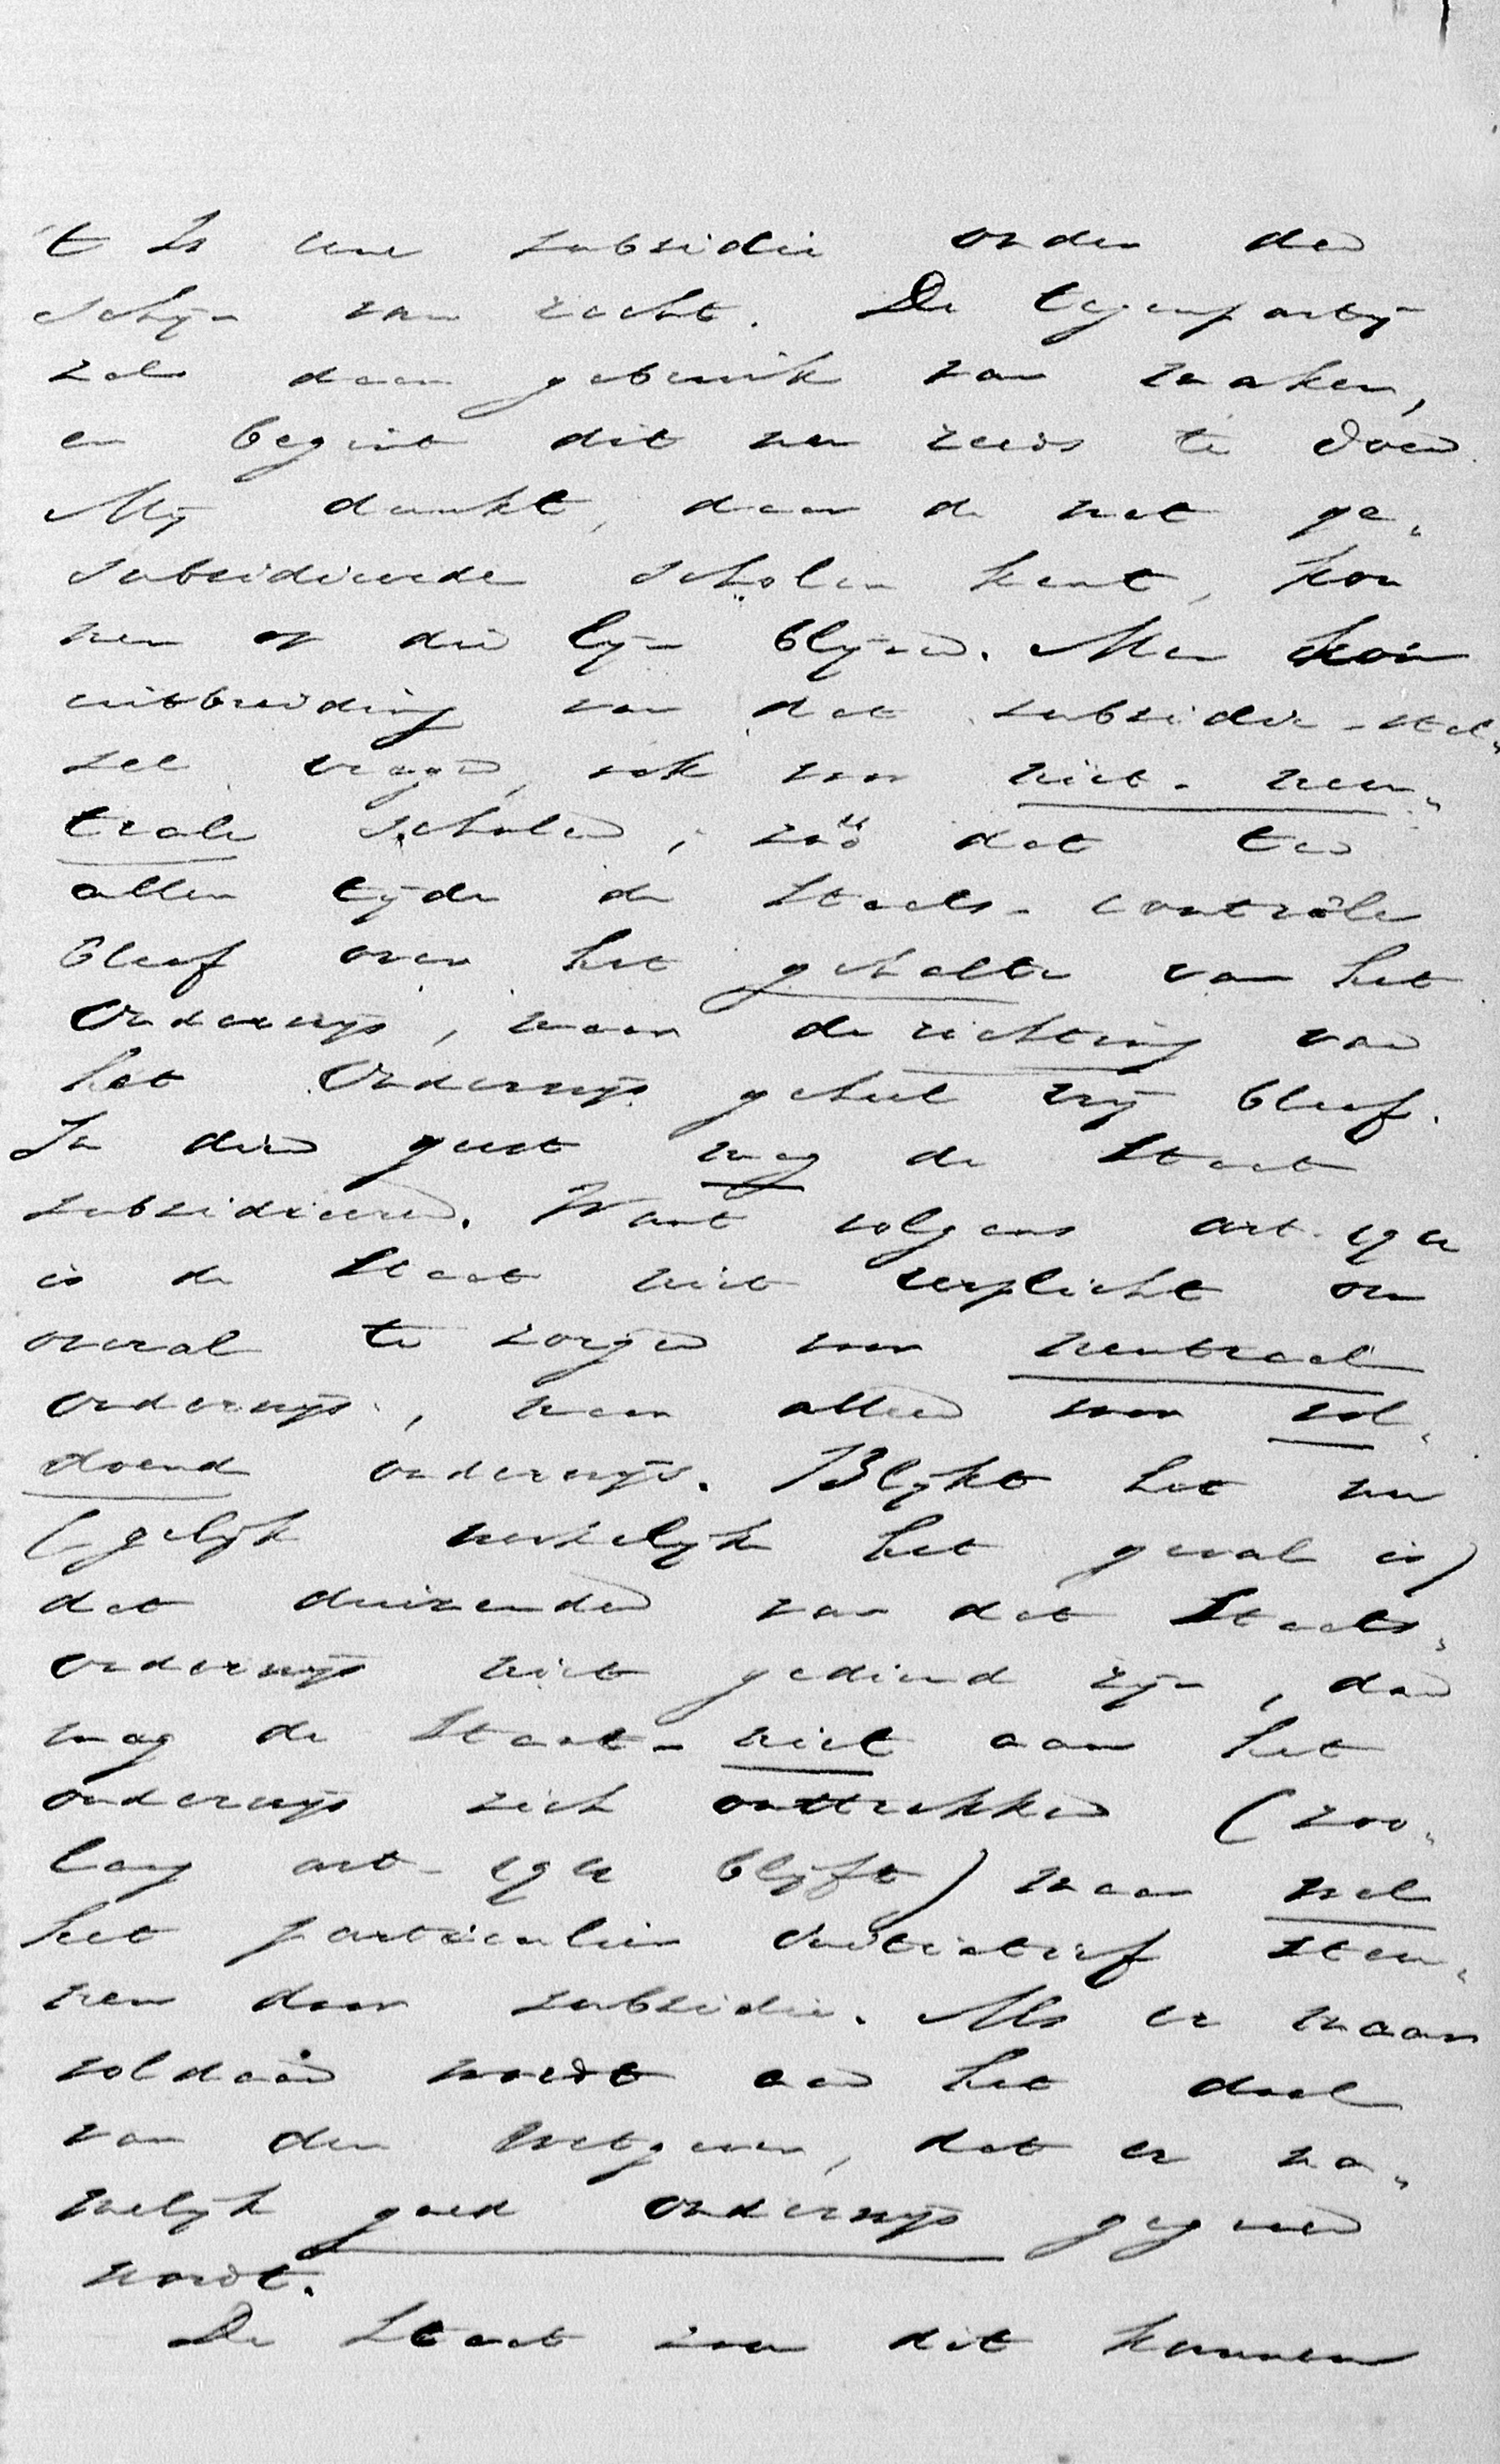 't Is eene subsidie onder den
schijn van recht. De tegenpartij
zal daar gebruik van maken,
en begint dit nu reeds te doen.
Mij dunkt, daar de wet ge„
subsidieerde scholen kent, kon
men op die lijn blijven. Men kon
uitbreiding van dat subsidie-stel„
sel vragen, ook voor niet-neu„
trale scholen; zóó dat ten
allen tijde de Staats-contrôle
bleef over het gehalte van het
Onderwijs, maar de richting van
het Onderwijs geheel vrij bleef.
In dien geest mag de Staat
subsidieeren. Want volgens art. 194
is de Staat niet verplicht om
overal te zorgen voor neutraal
onderwijs, maar alleen voor vol„
doend onderwijs. Blijkt het nu
(gelijk werkelijk het geval is)
dat duizenden van dat Staats„
onderwijs niet gediend zijn, dan
mag de Staat - niet aan het
onderwijs zich onttrekken (zoo„
lang art. 194 blijft) maar wel
het particulier initiatief steu„
nen door subsidie. Als er maar
voldaan wordt aan het doel
van den wetgever, dat er na„
melijk goed onderwijs gegeven
wordt.
De Staat zou dit kunnen